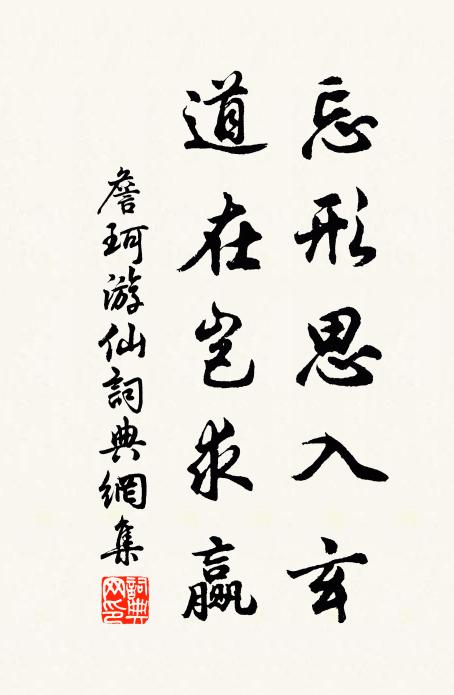 忘形思入玄
道在豈求贏
詹珂游仙詞典網集
詞典網印